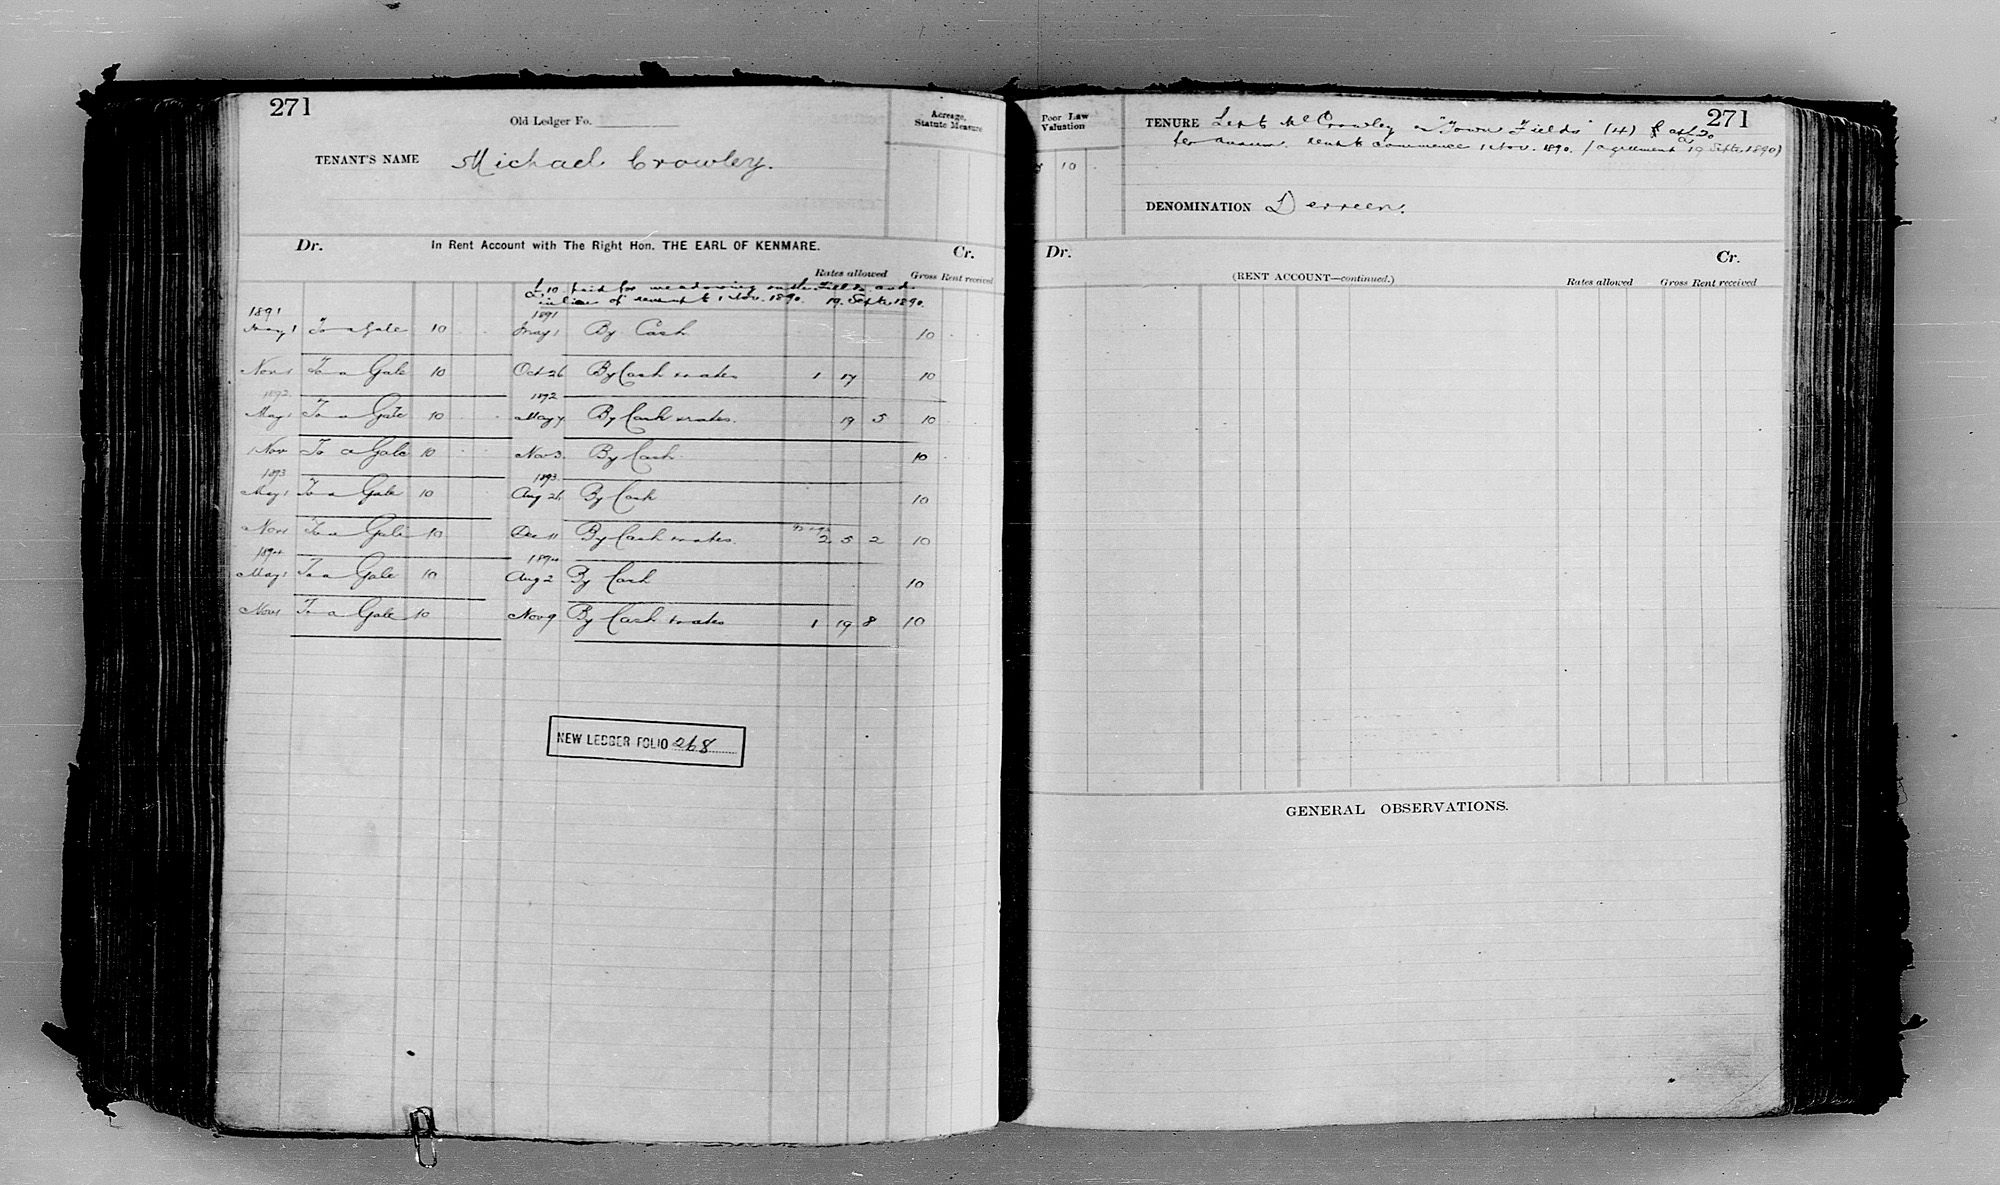 271
Old Ledger Fo.
TENANT'S NAME Michael Crowley.
Acreage, Statute Measure
Dr. In Rent Account with The Right Hon. THE EARL OF KENMARE. Cr.
Rates allowed Gross Rent received
£10 paid for meadowing on the Fields and
in lieu of rent up to 1 Nov. 1890. 19 Septr. 1890.
1891 1891
May 1 To a Gale 10 May 1 By Cash 10
Nov 1 To a Gale 10 Oct 26 By Cash & rates 1 17 10
1892 1892
May 1 To a Gale 10 May 7 By Cash & rates. 19 5 10
1 Nov To a Gale 10 Nov 3 By Cash 10
1893 1893
May 1 To a Gale 10 Aug 26 By Cash 10
Nov 1 To a Gale 10 Dec 11 By Cash & rates. 2 5 2 10
1894 1894
May 1 To a Gale 10 Aug 2 By Cash 10
Nov 1 To a Gale 10 Nov 9 By Cash & rates 1 19 8 10
NEW LEDGER FOLIO 268
271
Poor Law Valuation
10
TENURE Let to M Crowley as "Town Fields" (4) £20
per annum. rent to commence 1 Nov. 1890. (agreement 19 Septr. 1890)
DENOMINATION Derreen.
Dr. Cr.
(RENT ACCOUNT—continued.) Rates allowed Gross Rent received
GENERAL OBSERVATIONS.